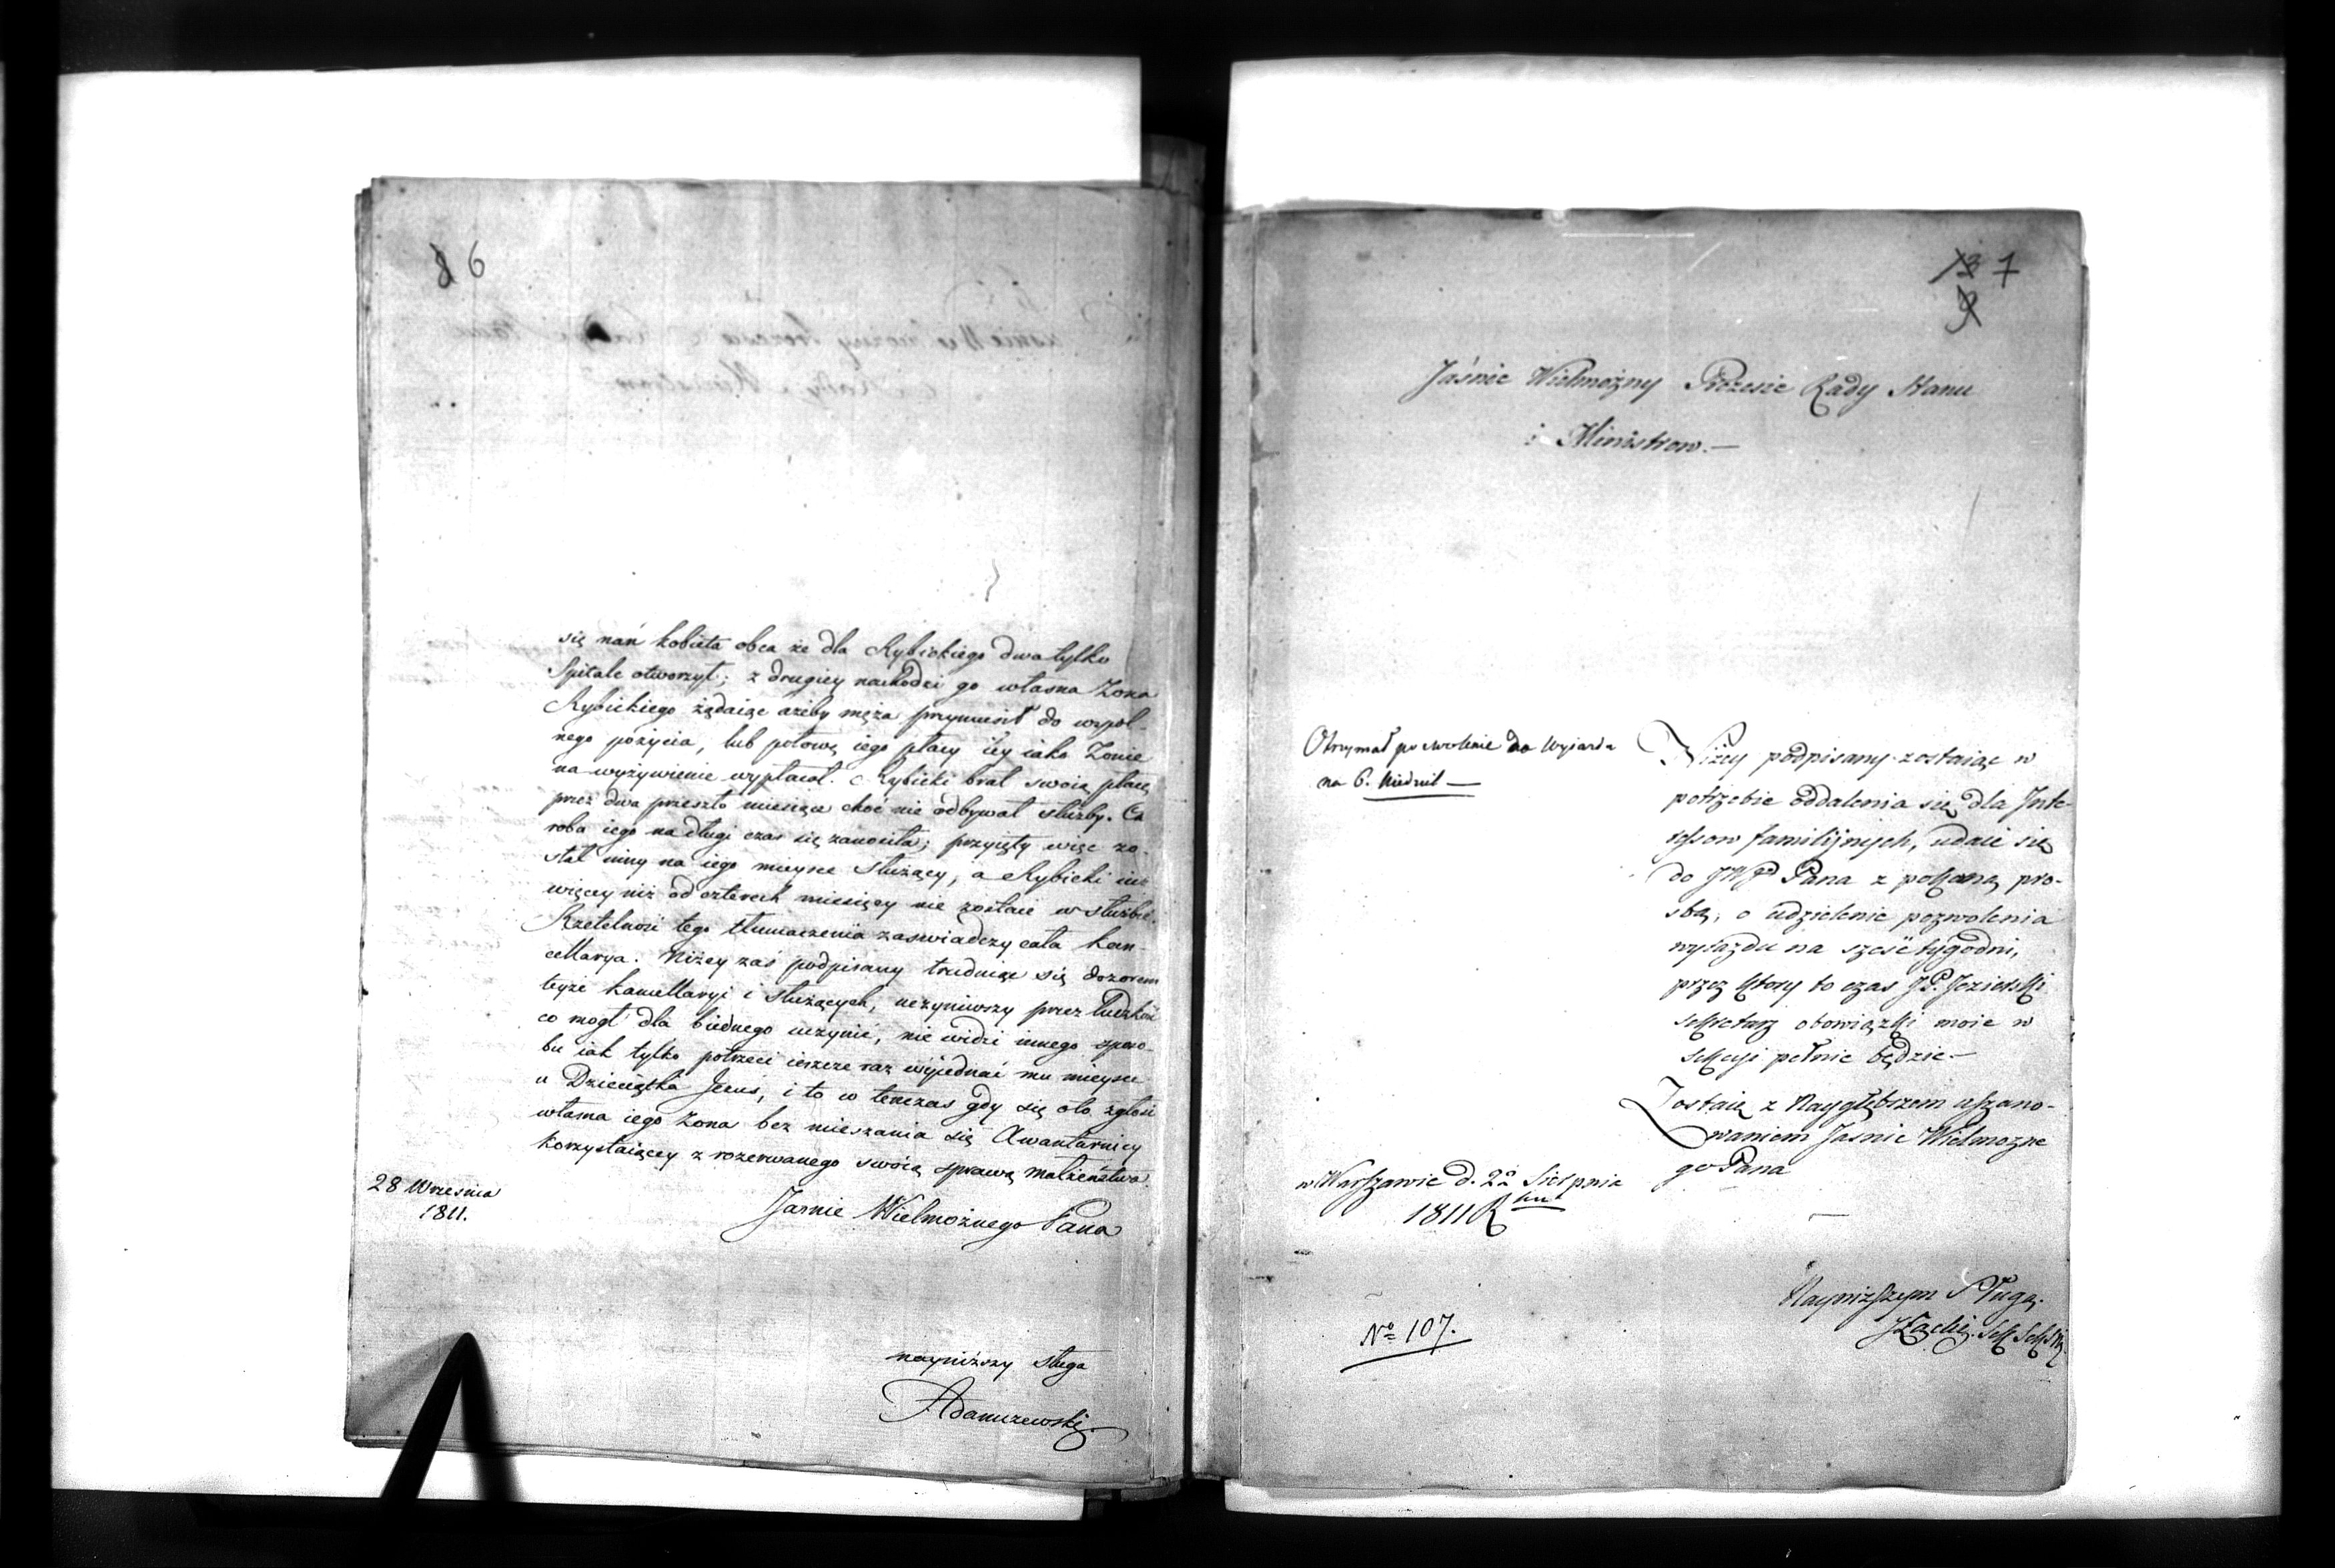 6
się nań kobieta obca że dla Rybickiego dwa tylko
Spitale otworzył; z drugiey nachodzi go własna Zona
Rybickiego żądaiąc ażeby męża przymusił do wspol-
nego pożycia, lub połowę iego płacy iey iako Zonie
na wyżywienie wypłacał. Rybicki brał swoią płacę
przez dwa przeszło miesiące choć nie odbywał służby. Cho
roba iego na długi czas się zanosiła; przyięty więc zo-
stał inny na iego mieysce Służący, a Rybicki iuż
więcey niż od czterech miesięcy nie zostaie w służbie.
Rzetelność tego tłumaczenia zaswiadczy cała kan-
cellarya. Niżey zaś podpisany trudniąc się dozorem
teyże kancellaryi i służących, uczyniwszy przez ludzkość
co mogł dla biednego uczynić, nie widzi innego sposo-
bu iak tylko potrzeci ieszcze raz wyiednać mu mieysce
u Dzieciątka Jezus, i to w tenczas gdy się oto zgłosi
własna iego żona bez mieszania się Awanturnicy
korzystaiącey z rozerwanego swoią sprawą małżeństwa.
28 Wrzesnia
1811.
Jasnie Wielmożnego Pana
nayniższy sługa
Adamczewski
7
Jáśnie Wielmożny Prezesie Rady Stanu
i Ministrow.—
Otrzymał pozwolenie do Wyiazdu
na 6. Niedziel —
Niżey podpisany zostaiąc w
potrzebie oddalenia się dla Inte-
ressow familijnych, udaie się
do JWgo Pana z pokorną pro-
sbą, o udzielenie pozwolenia
wyiazdu na sześć tygodni,
przez ktory to czas JP. Jezierski
sekretarz obowiązki moie w
sekcyi pełnić będzie.—
Zostaię z Naygłębszem uszano-
waniem Jasnie Wielmożne
go Pana
w Warszawie d. 22 Sierpnia
1811 Rku
Nayniższym Sługą.
№ 107.